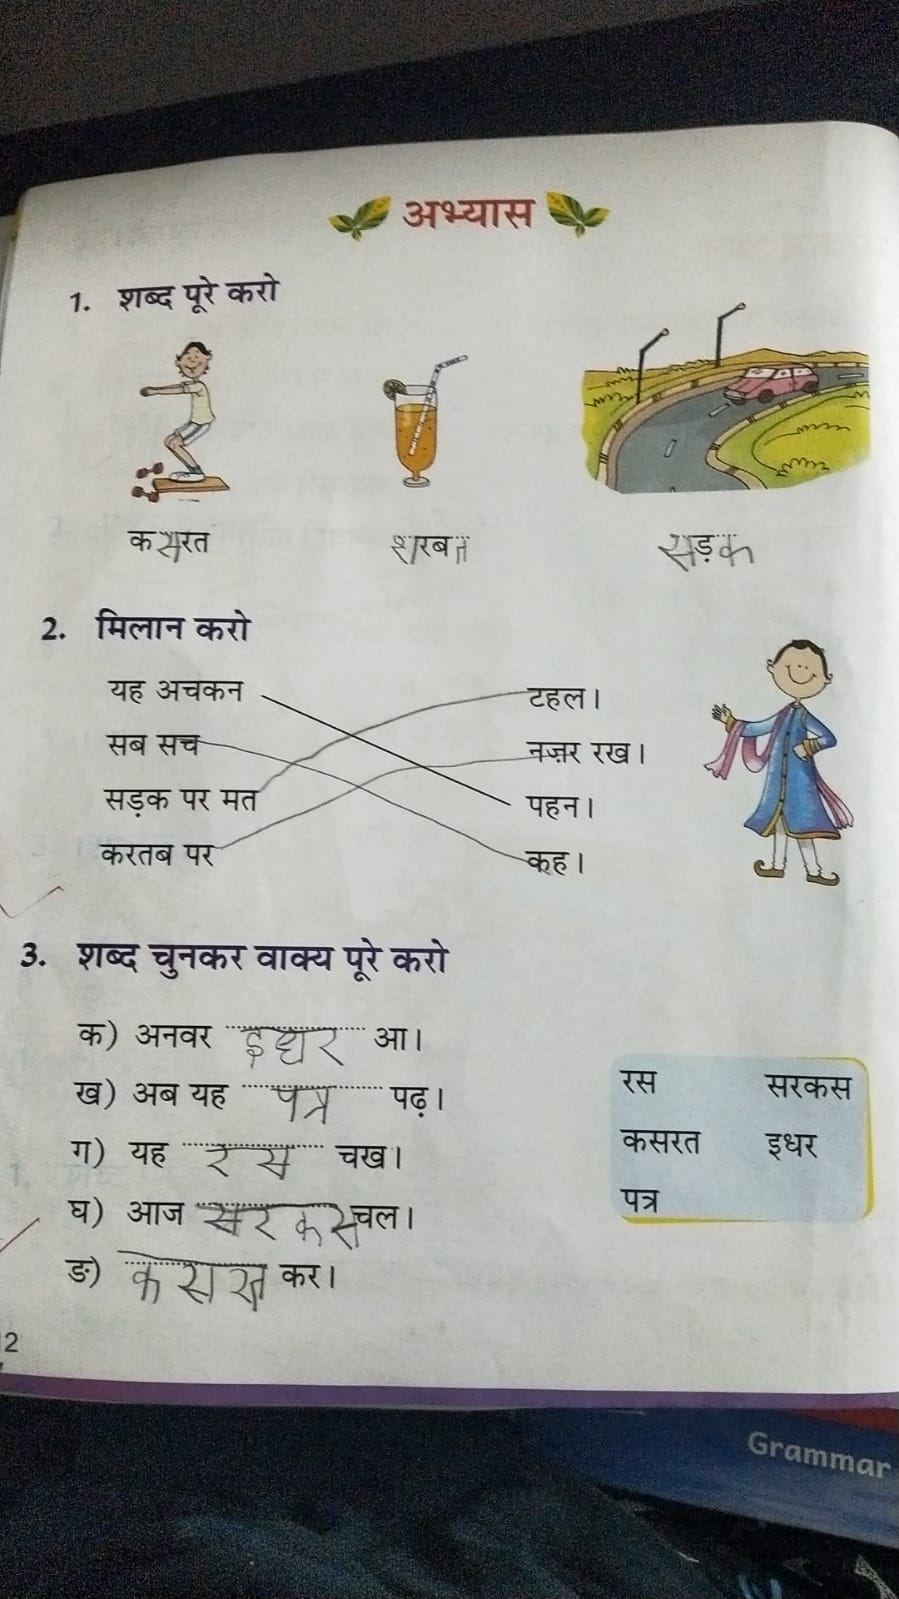 अभ्यास
1. शब्द पूरे करो
कसरत शरबत सड़क
2. मिलान करो
यह अचकन टहल।
सब सच नज़र रख।
सड़क पर मत पहन।
करतब पर कह।
3. शब्द चुनकर वाक्य पूरे करो
क) अनवर इधर आ।
ख) अब यह पत्र पढ़।
ग) यह रस चख।
घ) आज सरकस चल।
ङ) कसरत कर।
रस सरकस
कसरत इधर
पत्र
2
Grammar